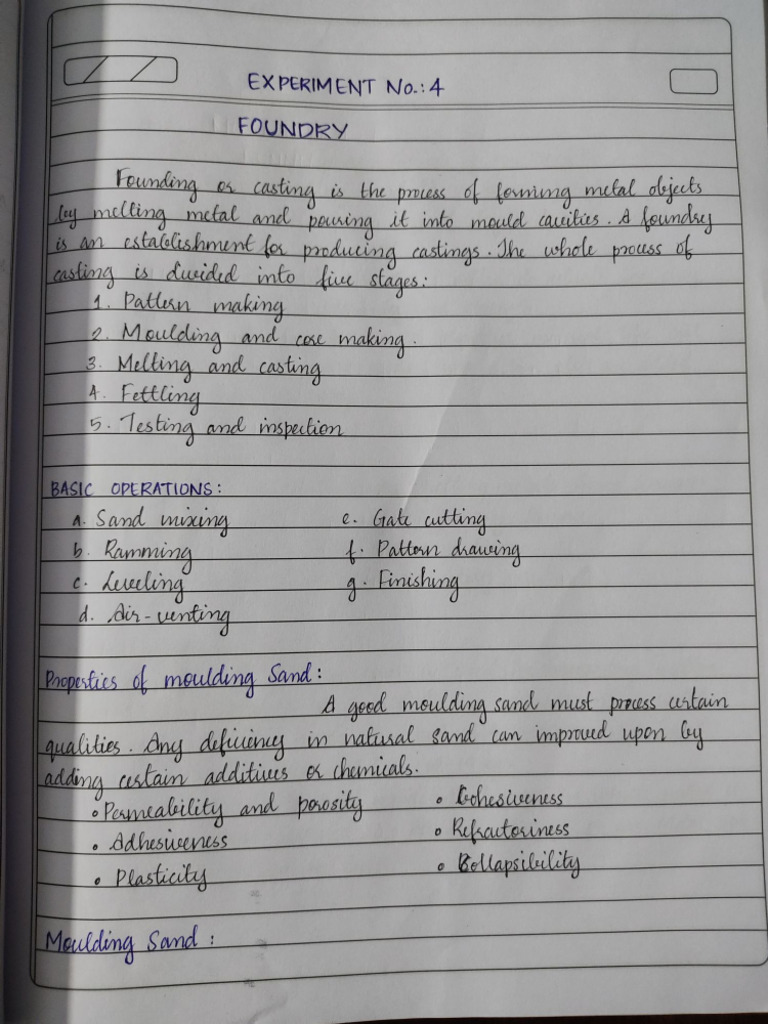 EXPERIMENT No.: 4
FOUNDRY
Founding or casting is the process of forming metal objects
by melting metal and pouring it into mould cavities. A foundry
is an establishment for producing castings. The whole process of
casting is divided into five stages:
1. Pattern making
2. Moulding and core making.
3. Melting and casting
4. Fettling
5. Testing and inspection
BASIC OPERATIONS:
a. Sand mixing
b. Ramming
c. Leveling
d. Air-venting
e. Gate cutting
f. Pattern drawing
g. Finishing
Properties of moulding Sand:
A good moulding sand must process certain
qualities. Any deficiency in natural sand can improved upon by
adding certain additives or chemicals.
• Permeability and porosity
• Adhesiveness
• Plasticity
• Cohesiveness
• Refractoriness
• Collapsibility
Moulding Sand: